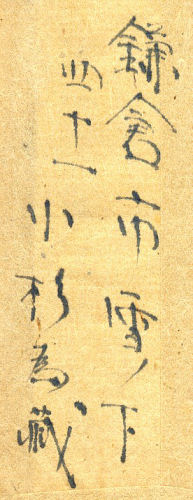 鎌倉市雪ノ下
四十一
小杉為蔵